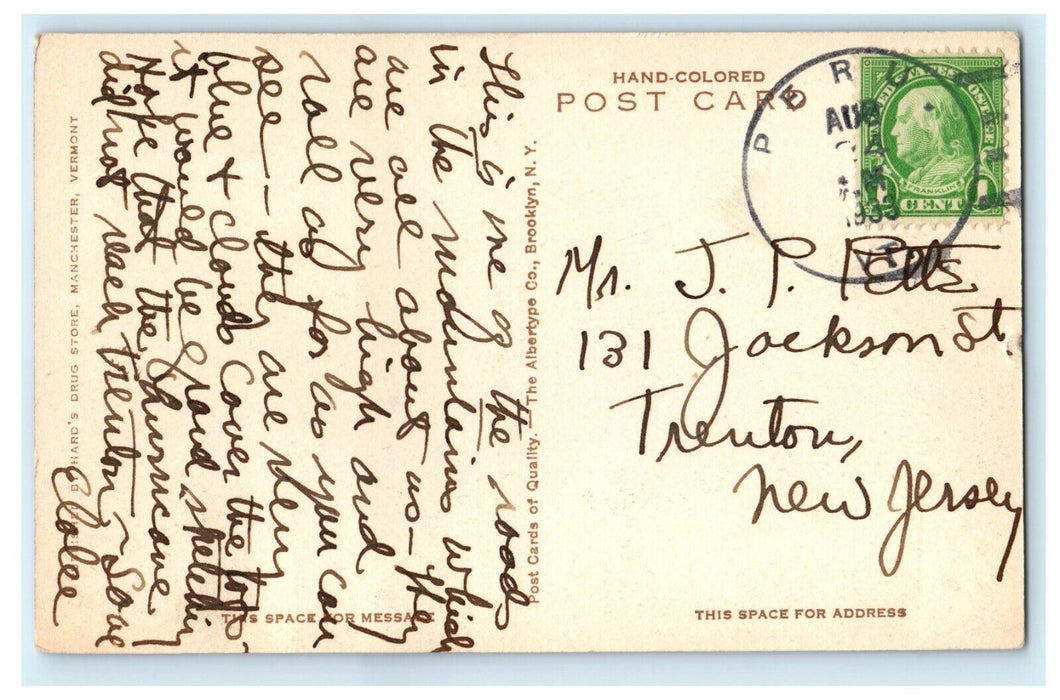 HAND-COLORED
POST CARD
PERU
AUG
A
1933
VT.
UNITED STATES POSTAGE
FRANKLIN
1 CENT 1
Mr. J. P. Petts
131 Jackson St.
Trenton,
New Jersey
THIS SPACE FOR ADDRESS
Post Cards of Quality. — The Albertype Co., Brooklyn, N. Y.
This is one of the roads
in the mountains which
are all about us — they
are very high and
roll as far as you can
see — they are very
blue & clouds cover the tops.
it would be grand sketching
Hope that the hurricane
did not reach Trenton — Love
Elolee
THIS SPACE FOR MESSAGE
HARD'S DRUG STORE, MANCHESTER, VERMONT